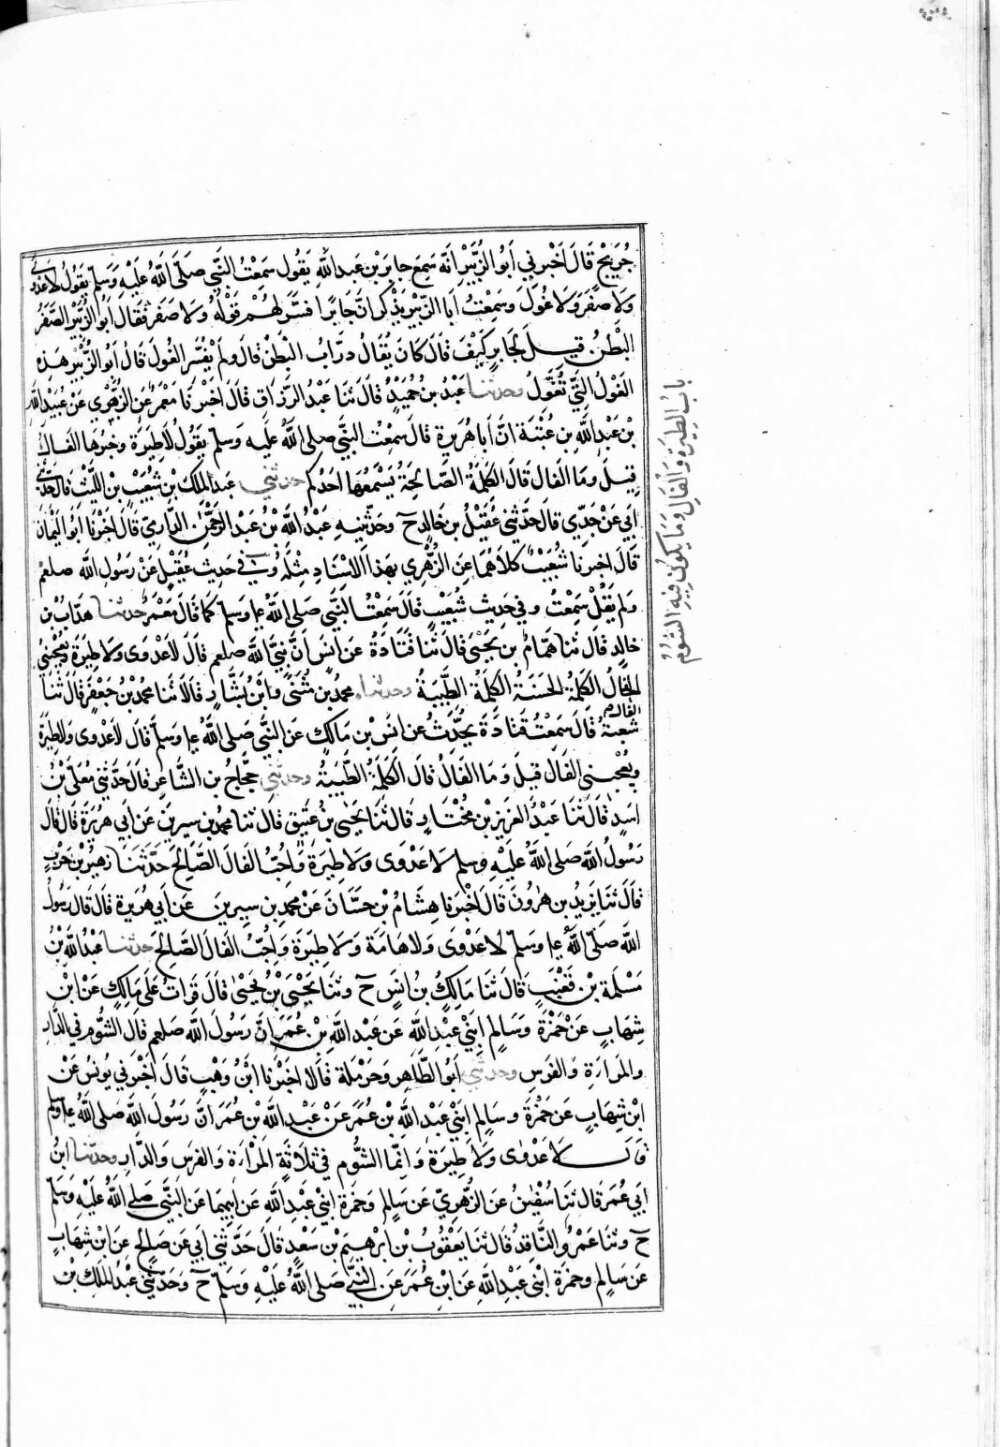 جُرَيْجٍ قَالَ أَخْبَرَنِي أَبُو الزُّبَيْرِ أَنَّهُ سَمِعَ جَابِرَ بْنَ عَبْدِ اللَّهِ يَقُولُ سَمِعْتُ النَّبِيَّ صَلَّى اللَّهُ عَلَيْهِ وَسَلَّمَ يَقُولُ لَا عَدْوَى
وَلَا صَفَرَ وَلَا غُولَ وَسَمِعْتُ أَبَا الزُّبَيْرِ يَذْكُرُ أَنَّ جَابِرًا فَسَّرَ لَهُمْ قَوْلَهُ وَلَا صَفَرَ فَقَالَ أَبُو الزُّبَيْرِ الصَّفَرُ
الْبَطْنُ قِيلَ لِجَابِرٍ كَيْفَ قَالَ كَانَ يُقَالُ دَوَابُّ الْبَطْنِ قَالَ وَلَمْ يُفَسِّرِ الْغُولَ قَالَ أَبُو الزُّبَيْرِ هَذِهِ
الْغُولُ الَّتِي تُغَوِّلُ وحدثنا عَبْدُ بْنُ حُمَيْدٍ قَالَ ثَنَا عَبْدُ الرَّزَّاقِ قَالَ أَخْبَرَنَا مَعْمَرٌ عَنِ الزُّهْرِيِّ عَنْ عُبَيْدِ اللَّهِ
بْنِ عَبْدِ اللَّهِ بْنِ عُتْبَةَ أَنَّ أَبَا هُرَيْرَةَ قَالَ سَمِعْتُ النَّبِيَّ صلى اللَّهُ عَلَيهِ وَسلم يَقُولُ لَا طِيَرَةَ وَخَيْرُهَا الْفَالُ
قِيلَ وَمَا الْفَالُ قَالَ الْكَلِمَةُ الصَّالِحَةُ يَسْمَعُهَا أَحَدُكُم حدثني عبد الملك بْنُ شُعَيْبِ بْنِ اللَّيْثِ قَالَ حَدَّثَنِي
أَبِي عَنْ جَدِّي قال حَدَّثَنِي عُقَيْلُ بْنُ خَالِدٍ ح وَحَدَّثَنِيهِ عَبْدُ اللَّهِ بْنُ عَبْدِ الرَّحْمٰنِ الدَّارِمِيُّ قَالَ أَخْبَرَنَا أَبُو الْيَمَانِ
قَالَ أَخبرنا شُعَيْبٌ كِلَاهُمَا عَنِ الزُّهْرِي بِهَذَا الْإِسْنَادِ مِثْلَهُ وَفِي حَدِيثِ عُقَيْلٍ عَنْ رَسُولِ اللَّهِ صلعم
وَلَمْ يَقُلْ سَمِعْتُ وَفِي حَدِيثِ شُعَيْبٍ قَالَ سَمِعْتُ النَّبِيَّ صَلَى اللَّهُ ع‍ وسلم كَمَا قَالَ مَعْمَرٌ حدثنا هَدَّابُ بْنُ
خَالِدٍ قَالَ ثَنَا هَمَّامُ بْنُ يَحْيَى قَالَ ثَنَا قَتَادَةُ عَنْ أَنَسٍ أَنَّ نَبِيَّ اللَّهِ صلعم قَالَ لَا عَدْوَى وَلَا طِيَرَةَ وَيُعْجِبُنِي
الفَالُ الْكَلِمَةُ الْحَسَنَةُ الْكَلِمَةُ الطَّيِّبَةُ وحدثنا محمد بن مثنى وَابْنُ بَشَّارٍ قَالَا ثَنَا مُحَمَّدُ بْنُ جَعْفَرٍ قَالَ ثَنَا
شُعْبَةُ قَالَ سَمِعْتُ قَتَادَةَ يُحَدِّثُ عَنْ أَنَسِ بْنِ مَالِكٍ عَنِ النَّبِيِّ صلى اللَّهُ ع‍ وسلم قَالَ لَا عَدْوَى وَلَا طِيَرَةَ
وَيُعْجِبُنِي الْفَالُ قِيلَ وَمَا الْفَالُ قَالَ الْكَلِمَةُ الطَّيِّبَةُ وحدثني حَجَّاجُ بْنُ الشَّاعِرِ قَالَ حَدَّثَنِي مُعَلَّى بْنُ
أَسَدٍ قَالَ ثَنَا عَبْدُ الْعَزِيزِ بْنُ مُخْتَارٍ قَالَ ثَنَا يَحْيَى بْنُ عَتِيقٍ قَالَ ثَنَا مُحَمَّدُ بْنُ سِيرِينَ عَنْ أَبِي هُرَيْرَةَ قَالَ قَالَ
رَسُولُ اللَّهِ صَلَى اللَّهُ عَلَيْهِ وَسَلَم لَا عَدْوَى وَلَا طِيَرَةَ وَأُحِبُّ الْفَالَ الصَّالِحَ حَدَّثَنَا زُهَيْرُ بْنُ حَرْبٍ
قَالَ ثَنَا يَزِيدُ بْنُ هٰرُونَ قَالَ أَخْبَرَنَا هِشَامُ بْنُ حَسَّانَ عَنْ مُحَمَّدِ بْنِ سِيرِينَ عَنْ أَبِي هُرَيْرَةَ قَالَ قَالَ رَسُولُ
اللَّهِ صَلَّى اللَّهُ ع‍ وسلم لَا عَدْوَى وَلَا هَامَةَ وَلَا طِيَرَةَ وَأُحِبُّ الْفَالَ الصَّالِحَ حدثنا عَبْدُ اللَّهِ بْنُ
مَسْلَمَةَ بْنِ قَعْنَبٍ قَالَ ثَنَا مَالِكُ بْنُ أَنَسٍ ح وثَنَا يَحْيَى بْنُ يَحْيَى قَالَ قَرَأتُ عَلَى مَالِكٍ عَنْ ابْنِ
شِهَابٍ عَنْ حَمْزَةَ وَسَالِمٍ ابْنَيْ عَبْدِ اللَّهِ عَنْ عَبْدِ اللَّهِ بْنِ عُمَرَ أَنَّ رَسُولَ اللَّهِ صَلعم قَالَ الشُّوْمُ فِي الدَّارِ
والمَرأَةِ وَالْفَرَسِ وحدثني أَبُو الطَّاهِرِ وَحَرْمَلَةُ قَالَا أَخْبَرَنَا ابْنُ وَهْبٍ قَالَ أَخْبَرَنِي يُونُسُ عَنْ
ابْنِ شِهَابٍ عَنْ حَمْزَةَ وَسَالِمٍ ابْنَيْ عَبْدِ اللَّهِ بْنِ عُمَرَ عَنْ عَبْدِ اللَّهِ بْنِ عُمَرَ أَنَّ رَسُولَ اللَّهِ صلى اللَّهُ ع‍ وسلم
قَالَ لَا عَدْوَى وَلَا طِيَرَةَ وَإِنَّمَا الشُّوْمُ فِي ثَلَاثَةٍ الْمَرْأَةِ وَالْفَرَسِ وَالدَّارِ وحدثنا ابْنُ
أَبِي عُمَرَ قَالَ ثَنَا سُفْيٰنُ عَنِ الزُّهْرِيِّ عَنْ سَالِمٍ وَحَمْزَةَ ابْنَيْ عَبْدِ اللَّهِ عَنْ أَبِيهِمَا عَنِ النَّبِيِّ صَلى اللَّهُ عَلَيْهِ وَسَلَّمَ
ح وَثَنَا عَمْرٌو النَّاقِدُ قَالَ ثَنَا يَعْقُوبُ بْنُ إِبْرٰهِيمَ بْنِ سَعْدٍ قَالَ حَدَّثَنِي أَبِي عَنْ صَالِحٍ عَنِ ابْنِ شِهَابٍ
عَنْ سَالِمٍ وَحَمْزَةَ ابْنَيْ عَبْدِ اللَّهِ عَنِ ابْنِ عُمَرَ عَنِ النَّبِيِّ صَلَى اللَّهُ عَلَيْهِ وَسَلَّمَ ح وَحَدَّثَنِي عَبْدُ الْمَلِكِ بْنُ
بَابُ الطِّيَرَةِ وَالْفَالِ وَمَا يَكُونُ فِيهِ الشُّوْمُ